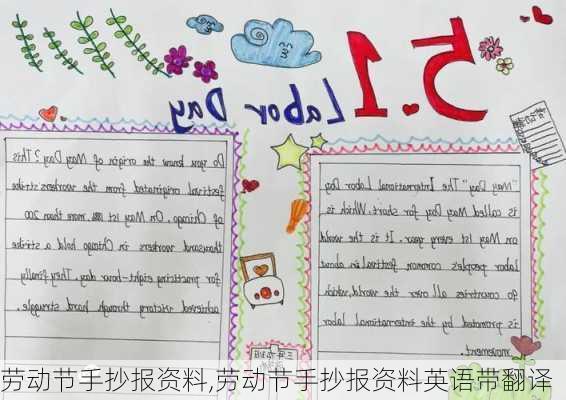 5.1
Labor Day
"May Day" The International Labor Day
is called May Day for short. Which is
on May 1st every year. It is the world
Labor people's common festival in about
90 countries all over the world, which
is promoted by the international labor
movement.
Do you know the origin of May Day? This
festival originated from the workers strike
of Chicago May. On May 1st, more than 200
thousand workers in Chicago hold a strike
for practicing eight-hour day. They finally
achieved victory through hard struggle.
劳动节手抄报资料,劳动节手抄报资料英语带翻译